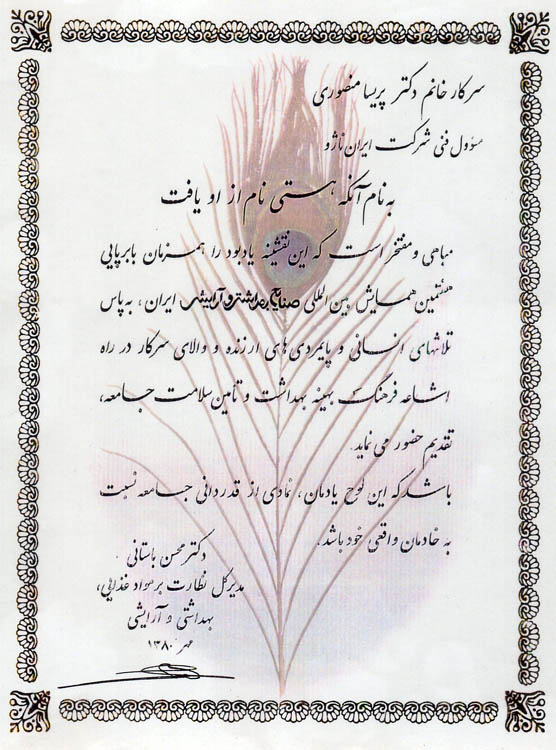 سرکار خانم دکتر پریسا منصوری
مسؤول فنی شرکت ایران ناژو
به نام آنکه هستی نام از او یافت
مباهی و مفتخر است که این نقشینه یادبود را همزمان با برپایی
هفتمین همایش بین‌المللی صنایع بهداشتی و آرایشی ایران، به پاس
تلاشهای انسانی و پایمردی‌های ارزنده و والای سرکار در راه
اشاعه فرهنگ بهینه بهداشت و تأمین سلامت جامعه،
تقدیم حضور می نماید.
باشد که این لوح یادمان، نمادی از قدردانی جامعه نسبت
به خادمان واقعی خود باشد.
دکتر محسن باستانی
مدیر کل نظارت بر مواد غذایی،
بهداشتی و آرایشی
مهر ۱۳۸۰